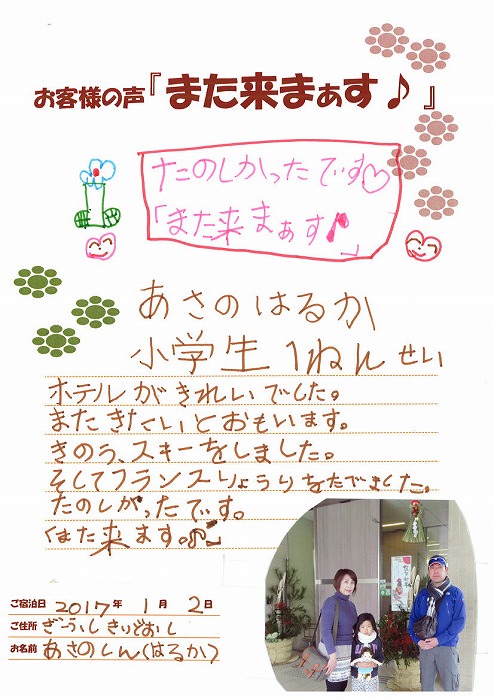 お客様の声『また来まぁす♪』
たのしかったです♡
「また来まぁす♪」
あさの はるか
小学生1ねんせい
ホテルがきれいでした。
またきたいとおもいます。
きのう、スキーをしました。
そしてフランスりょうりをたでました。
たのしがったです。
「また来ます。♪」
ご宿泊日 2017年 1月 2日
ご住所
お名前 あさのしん(はるか)